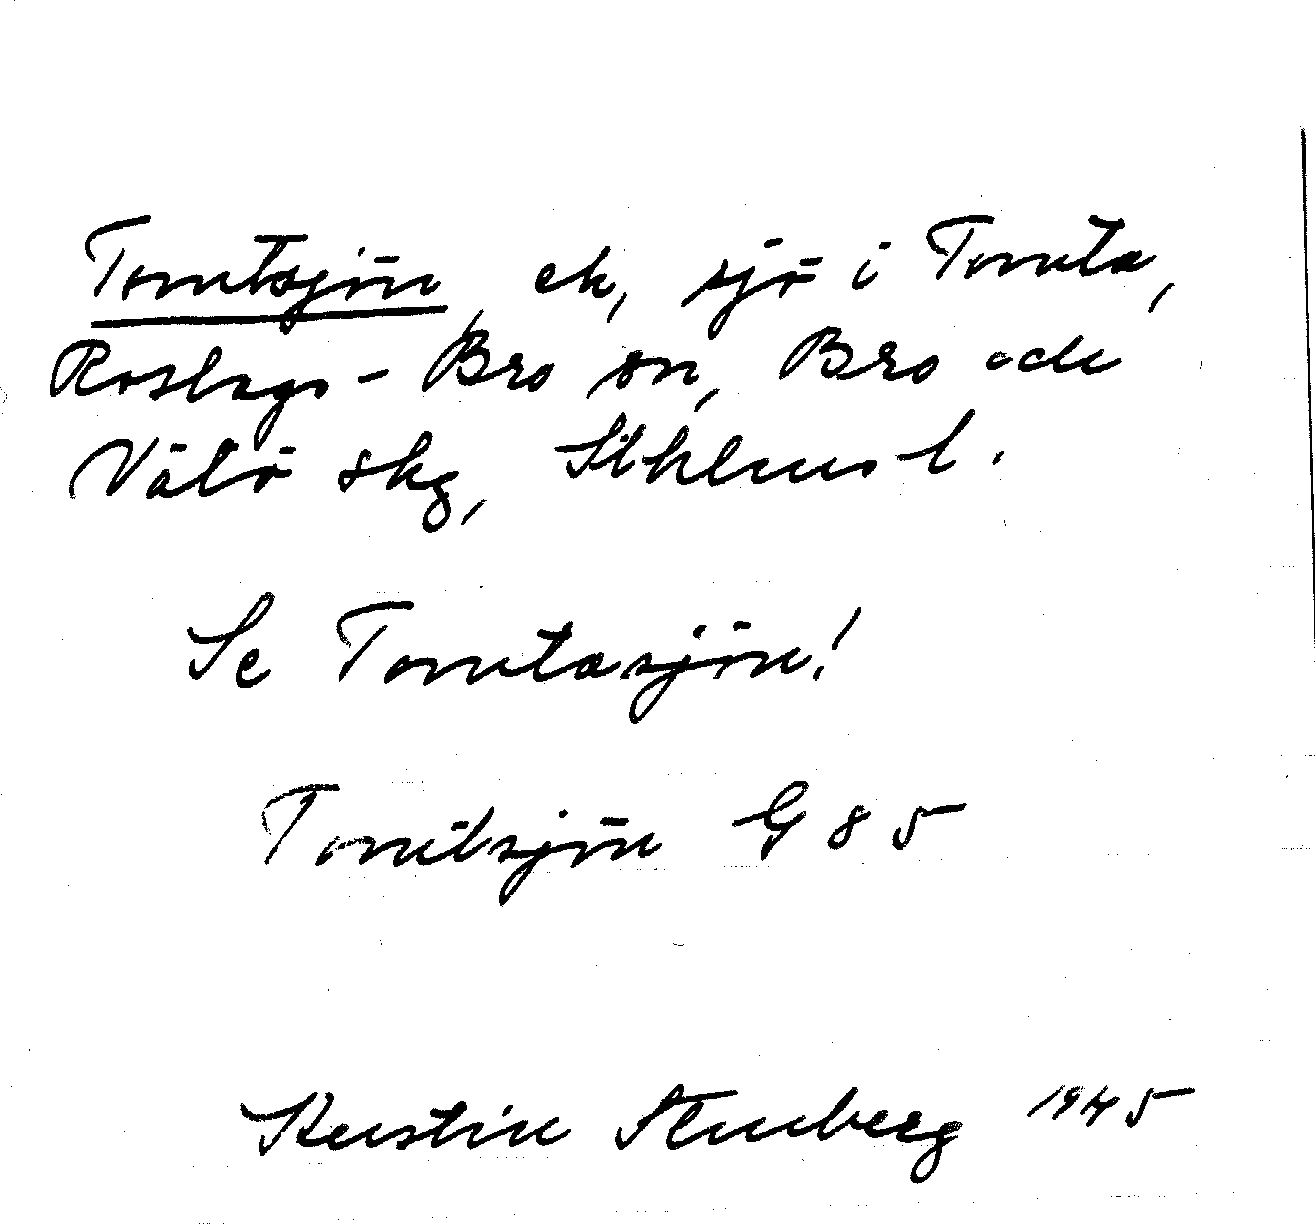 Tomtsjön, ek, sjö i Tomta,
Roslags-Bro sn, Bro och
Vätö skg, Sthlms l.
Se Tomtasjön!
Tomtsjön G 85
Kerstin Stenberg 1945